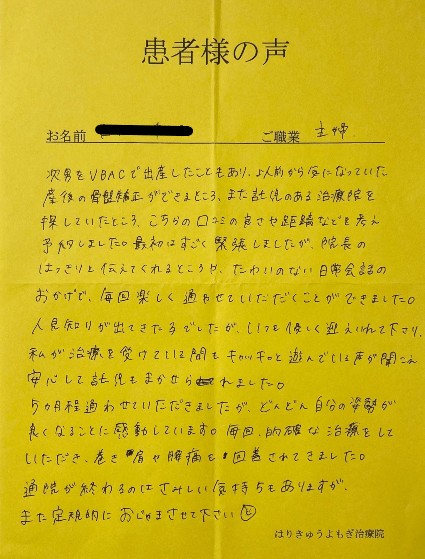 患者様の声
お名前 ご職業 主婦
次男をVBACで出産したこともあり、以前から気になっていた
産後の骨盤矯正ができるところ、また託児のある治療院を
探していたところ、こちらの口コミの良さや距離などを考え
予約しました。最初はすごく緊張しましたが、院長の
はっきりと伝えてくれるところや、たわいのない日常会話の
おかげで、毎回楽しく通わせていただくことができました。
人見知りが出てきた子でしたが、いつも優しく迎えいれて下さり、
私が治療を受けている間もキャッキャと遊んでいる声が聞こえ
安心して託児もまかせられました。
5ヵ月程通わせていただきましたが、どんどん自分の姿勢が
良くなることに感動しています。毎回、的確な治療をして
いただき、巻き肩や腰痛も改善されてきました。
通院が終わるのはさみしい気持ちもありますが、
また定期的におじゃまさせて下さい
はりきゅうよもぎ治療院